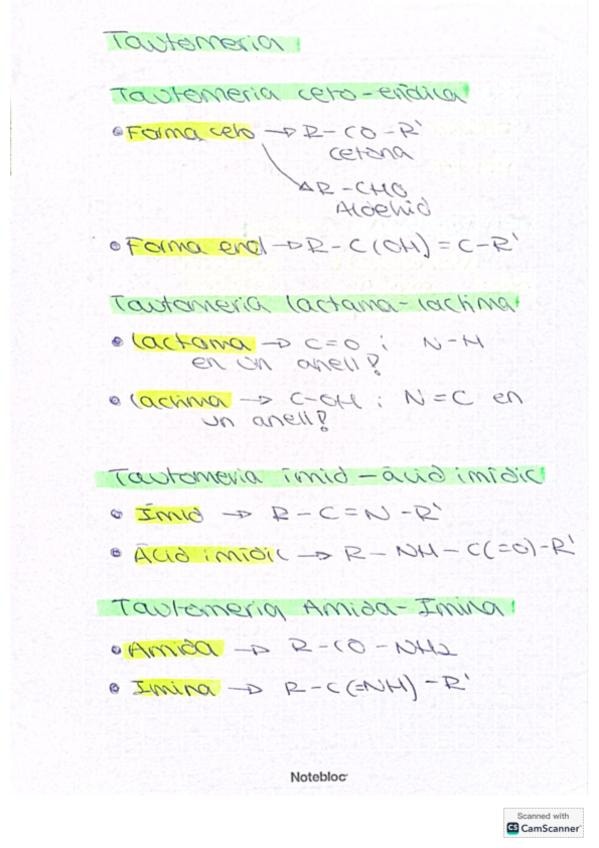 Tautomeria
Tautomeria ceto-enòlica
• Forma ceto → R-CO-R'
cetona
→ R-CHO
Aldehid
• Forma enol → R-C(OH)=C-R'
Tautomeria lactama-lactima
• Lactama → C=O i N-H
en un anell?
• Lactima → C-OH i N=C en
un anell?
Tautomeria imid-àcid imídic
• Imid → R-C=N-R'
• Àcid imídic → R-NH-C(=O)-R'
Tautomeria Amida-Imina
• Amida → R-CO-NH2
• Imina → R-C(=NH)-R'
Notebloc
Scanned with
CS CamScanner